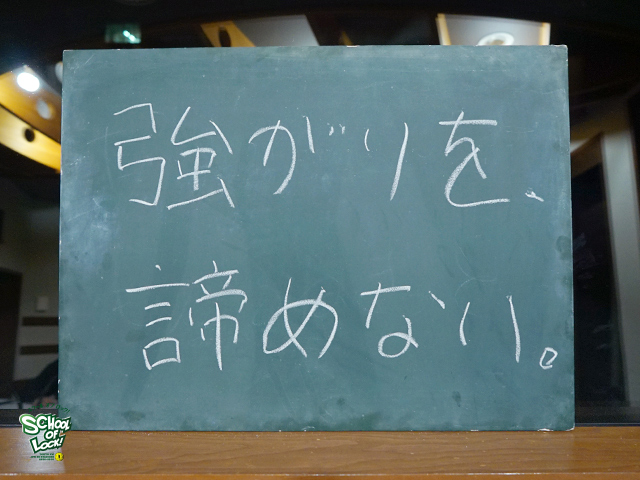 強がりを、
諦めない。
SCHOOL
OF
LOCK!